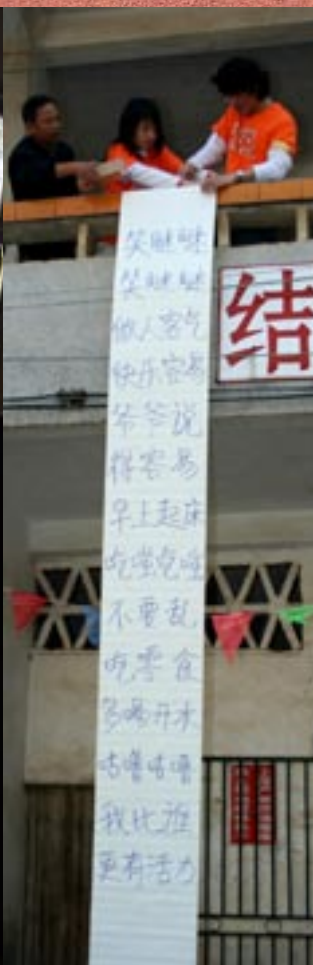 笑眯眯
笑眯眯
做人客气
快乐容易
爷爷说
得容易
早上起床
不要乱
吃零食
多喝开水
咕噜咕噜
我比谁
更有活力
结